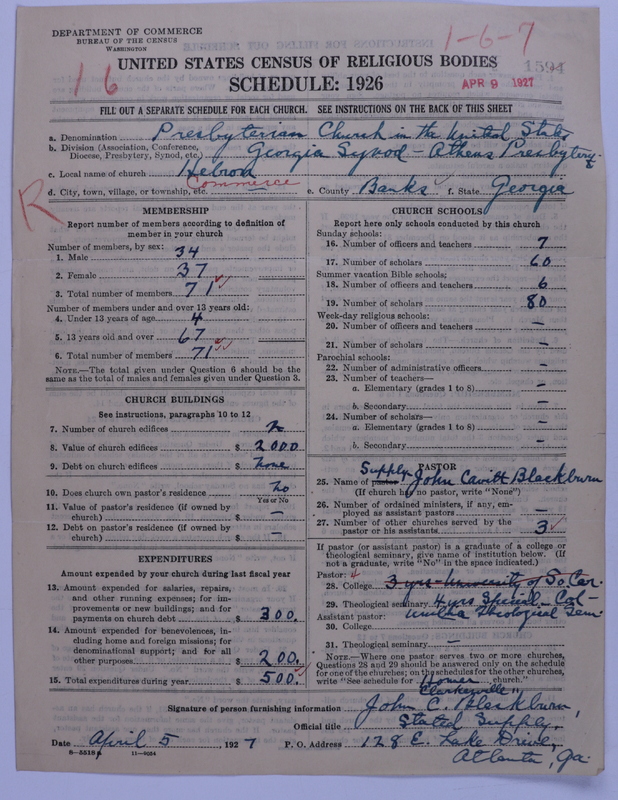 DEPARTMENT OF COMMERCE
BUREAU OF THE CENSUS
WASHINGTON
1-6-7
16
1594
UNITED STATES CENSUS OF RELIGIOUS BODIES
APR 9 1927
SCHEDULE: 1926
FILL OUT A SEPARATE SCHEDULE FOR EACH CHURCH. SEE INSTRUCTIONS ON THE BACK OF THIS SHEET
a. Denomination Presbyterian Church in the United States
b. Division (Association, Conference, Diocese, Presbytery, Synod, etc.) Georgia Synod - Athens Presbytery.
c. Local name of church Hebron
d. City, town, village, or township, etc. Commerce e. County Banks f. State Georgia
R
MEMBERSHIP
Report number of members according to definition of
member in your church
Number of members, by sex:
1. Male 34
2. Female 37
3. Total number of members 71
Number of members under and over 13 years old:
4. Under 13 years of age 4
5. 13 years old and over 67
6. Total number of members 71
NOTE.—The total given under Question 6 should be
same as the total of males and females given under Question 3.
CHURCH BUILDINGS
See instructions, paragraphs 10 to 12
7. Number of church edifices
8. Value of church edifices $ 2000
9. Debt on church edifices $ none
10. Does church own pastor's residence no
Yes or No
11. Value of pastor's residence (if owned by
church) $ —
12. Debt on pastor's residence (if owned by
church) $ —
EXPENDITURES
Amount expended by your church during last fiscal year
13. Amount expended for salaries, repairs,
and other running expenses; for im-
provements or new buildings; and for
payments on church debt $ 300.
14. Amount expended for benevolences, in-
cluding home and foreign missions; for
denominational support; and for all
other purposes $ 200.
15. Total expenditures during year $ 500.
CHURCH SCHOOLS
Report here only schools conducted by this church
Sunday schools:
16. Number of officers and teachers 7
17. Number of scholars 60
Summer vacation Bible schools:
18. Number of officers and teachers 6
19. Number of scholars 80
Week-day religious schools:
20. Number of officers and teachers —
21. Number of scholars —
Parochial schools:
22. Number of administrative officers —
23. Number of teachers—
a. Elementary (grades 1 to 8) —
b. Secondary —
24. Number of scholars—
a. Elementary (grades 1 to 8) —
b. Secondary —
PASTOR
Supply
25. Name of pastor John Cavitt Blackburn
(If church has no pastor, write "None")
26. Number of ordained ministers, if any, em-
ployed as assistant pastors —
27. Number of other churches served by the
pastor or his assistants 3
If pastor (or assistant pastor) is a graduate of a college or
theological seminary, give name of institution below. (If
not a graduate, write "No" in the space indicated.)
Pastor:
28. College 3 yrs - University of So. Car.
29. Theological seminary 4 yrs Special - Col-
Assistant pastor: umbia Theological Sem
30. College
31. Theological seminary —
NOTE.—Where one pastor serves two or more churches,
Questions 28 and 29 should be answered only on the schedule
for one of the churches; on the schedules for the other churches,
write "See schedule for Homer church."
Clarkesville "
Signature of person furnishing information John C. Blackburn,
Official title Stated Supply,
Date April 5 1927 P. O. Address 128 E. Lake Drive,
Atlanta, Ga
11-9054